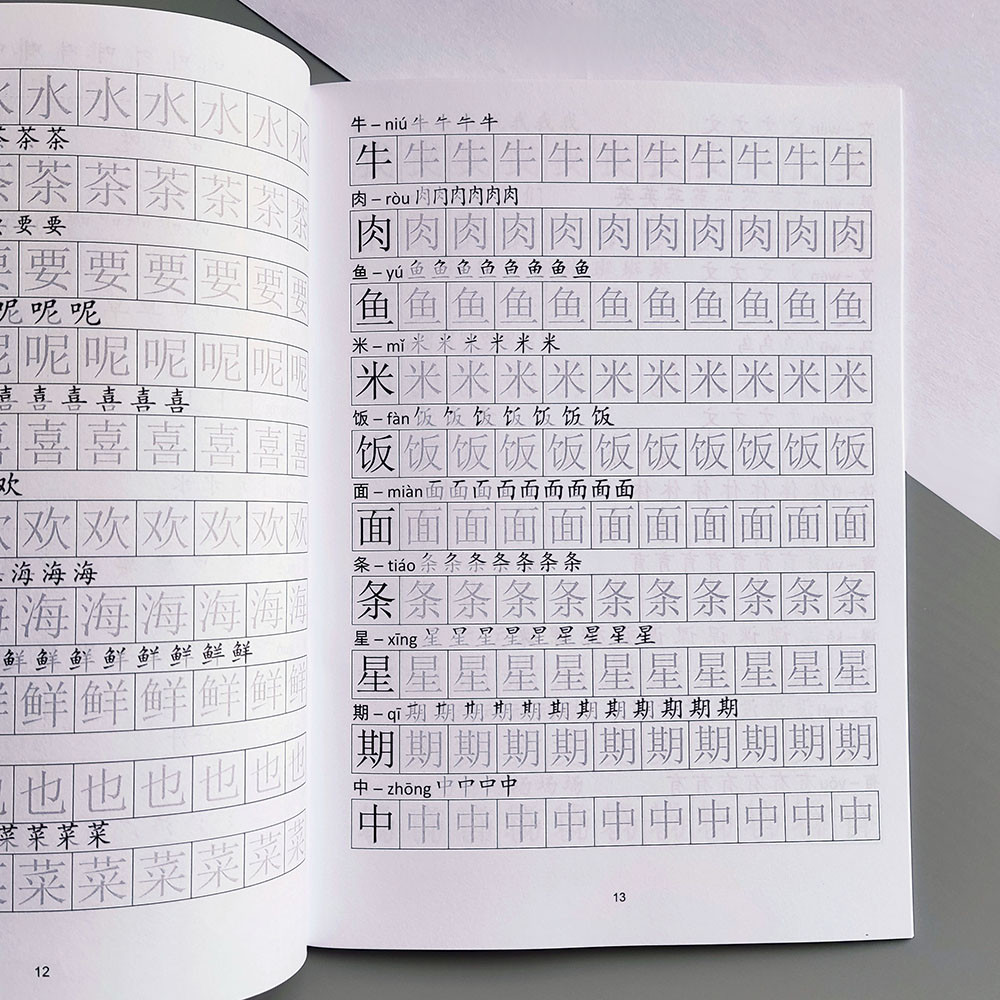 水 水 水 水 水 水
茶 茶 茶
茶 茶 茶 茶 茶 茶
要 要
要 要 要 要 要 要
呢 呢 呢
呢 呢 呢 呢 呢 呢
喜 喜 喜 喜 喜 喜
喜 喜 喜 喜 喜 喜
欢
欢 欢 欢 欢 欢 欢
海 海 海
海 海 海 海 海 海
鲜 鲜 鲜 鲜 鲜 鲜 鲜 鲜
鲜 鲜 鲜 鲜 鲜 鲜
也 也 也 也 也 也
菜 菜 菜 菜
菜 菜 菜 菜 菜 菜
12
牛 – niú 牛 牛 牛 牛
牛 牛 牛 牛 牛 牛 牛 牛 牛 牛 牛
肉 – ròu 肉 肉 肉 肉 肉 肉
肉 肉 肉 肉 肉 肉 肉 肉 肉 肉 肉
鱼 – yú 鱼 鱼 鱼 鱼 鱼 鱼 鱼 鱼
鱼 鱼 鱼 鱼 鱼 鱼 鱼 鱼 鱼 鱼 鱼
米 – mǐ 米 米 米 米 米 米
米 米 米 米 米 米 米 米 米 米 米
饭 – fàn 饭 饭 饭 饭 饭 饭 饭
饭 饭 饭 饭 饭 饭 饭 饭 饭 饭 饭
面 – miàn 面 面 面 面 面 面 面 面 面
面 面 面 面 面 面 面 面 面 面 面
条 – tiáo 条 条 条 条 条 条 条
条 条 条 条 条 条 条 条 条 条 条
星 – xīng 星 星 星 星 星 星 星 星 星
星 星 星 星 星 星 星 星 星 星 星
期 – qī 期 期 期 期 期 期 期 期 期 期 期 期
期 期 期 期 期 期 期 期 期 期 期
中 – zhōng 中 中 中 中
中 中 中 中 中 中 中 中 中 中 中
13